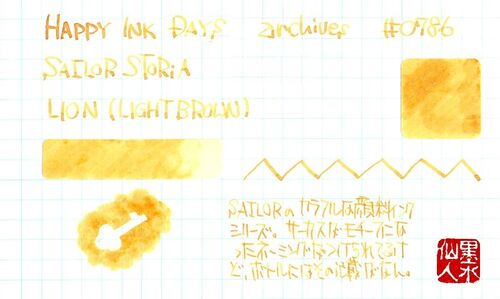 HAPPY INK DAYS archives #0786
SAILOR STORIA
LION (LIGHT BROWN)
SAILORの カラフルな顔料インク
シリーズ。サーカスなモチーフにな
ったネーミングがつけられてるけ
ど、ボトルにはその記載がなん。
仙墨
人水